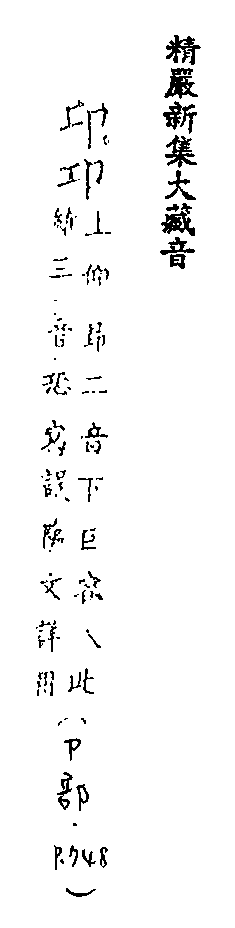 精嚴新集大藏音
卭、卭
上仰昂二音下巨容乀此
三音恐寫誤臨文詳用
(卩部.P.748)